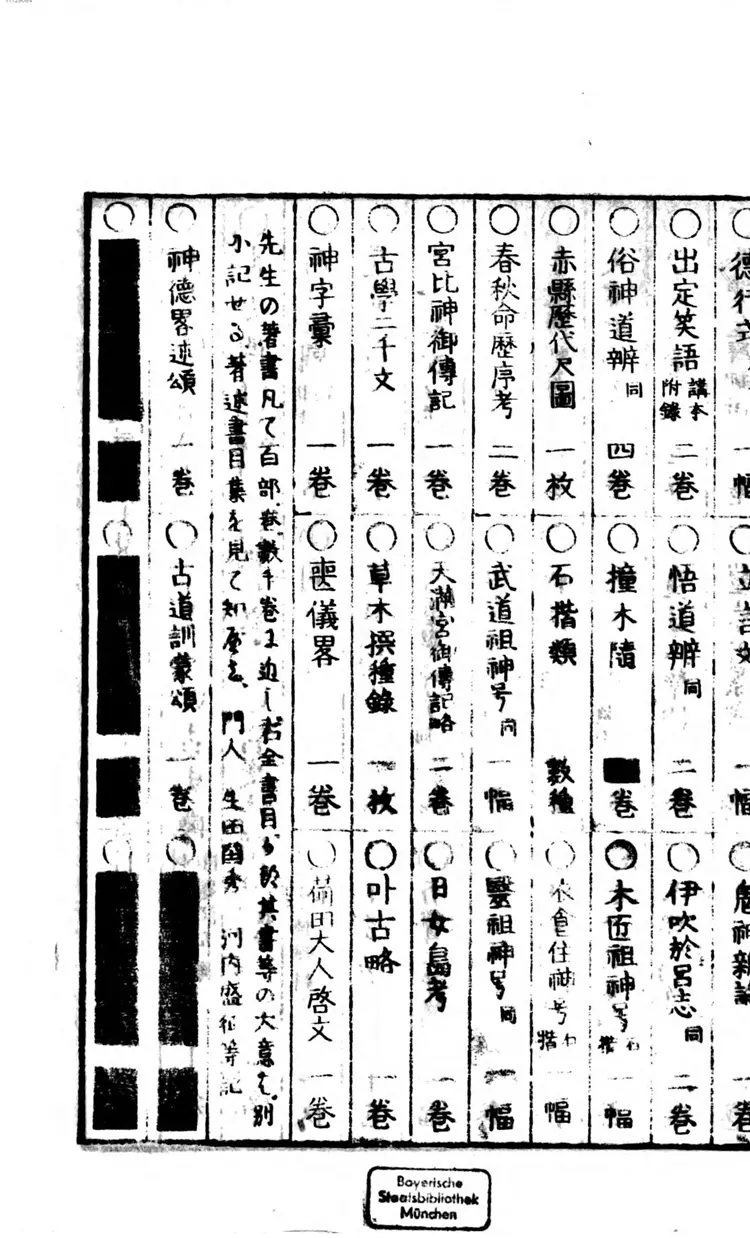 出定笑語 講本附錄 二卷
悟道辨 同 二卷
伊吹於呂志 同 二卷
俗神道辨 同 四卷
撞木隨 卷
木匠祖神号 石摺 一幅
赤縣歷代尺圖 一枚
石摺類 數種
衣食住神号 石摺 一幅
春秋命歷序考 二卷
武道祖神号 同 一幅
醫祖神号 同 一幅
宮比神御傳記 一卷
天滿宮御傳記略 二卷
日女島考 一卷
古學二千文 一卷
草木撰種錄 一枚
叶古略 一卷
神字彙 一卷
喪儀畧 一卷
荷田大人啓文 一卷
先生の著書凡て百部巻數千卷に近し右全書目および其書等の大意は別
に記せる著述書目集を見て知るべし 門人 生田國秀 河内盛征等記
神德畧述頌 一卷
古道訓蒙頌 一卷
Bayerische
Staatsbibliothek
München